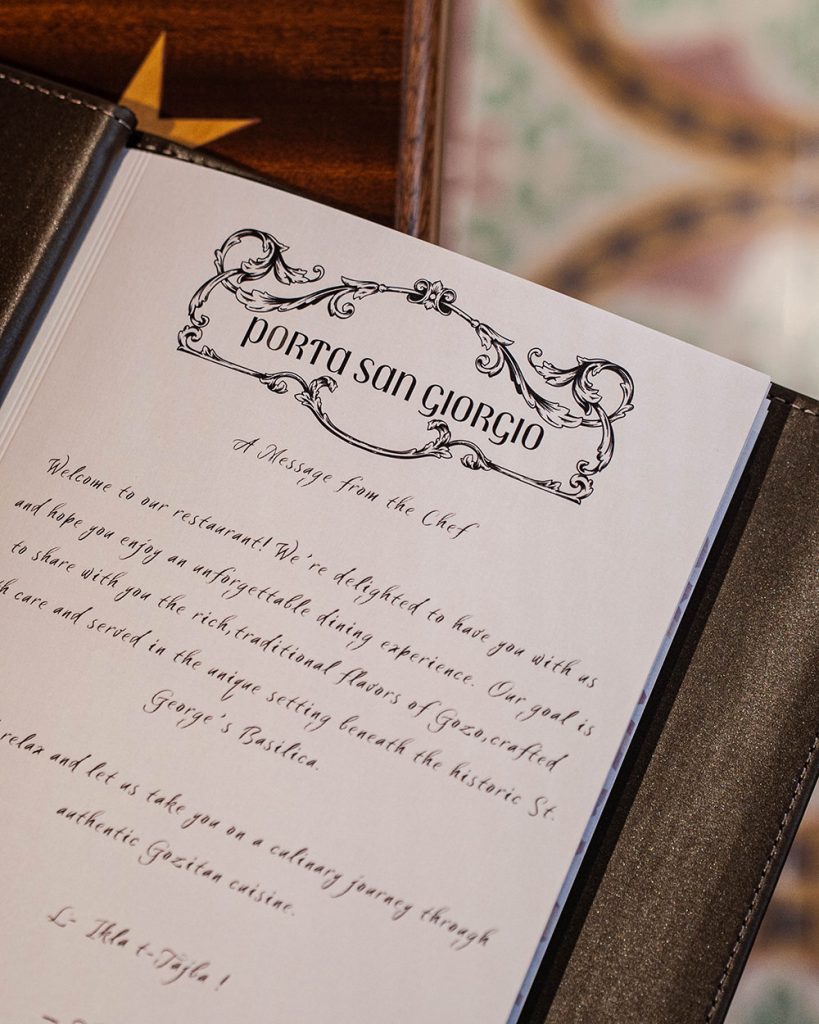 PORTA SAN GIORGIO
A Message from the Chef
Welcome to our restaurant! We're delighted to have you with us
and hope you enjoy an unforgettable dining experience. Our goal is
to share with you the rich,traditional flavors of Gozo,crafted
care and served in the unique setting beneath the historic St.
George's Basilica.
relax and let us take you on a culinary journey through
authentic Gozitan cuisine.
L- Ikla t-Tajba !